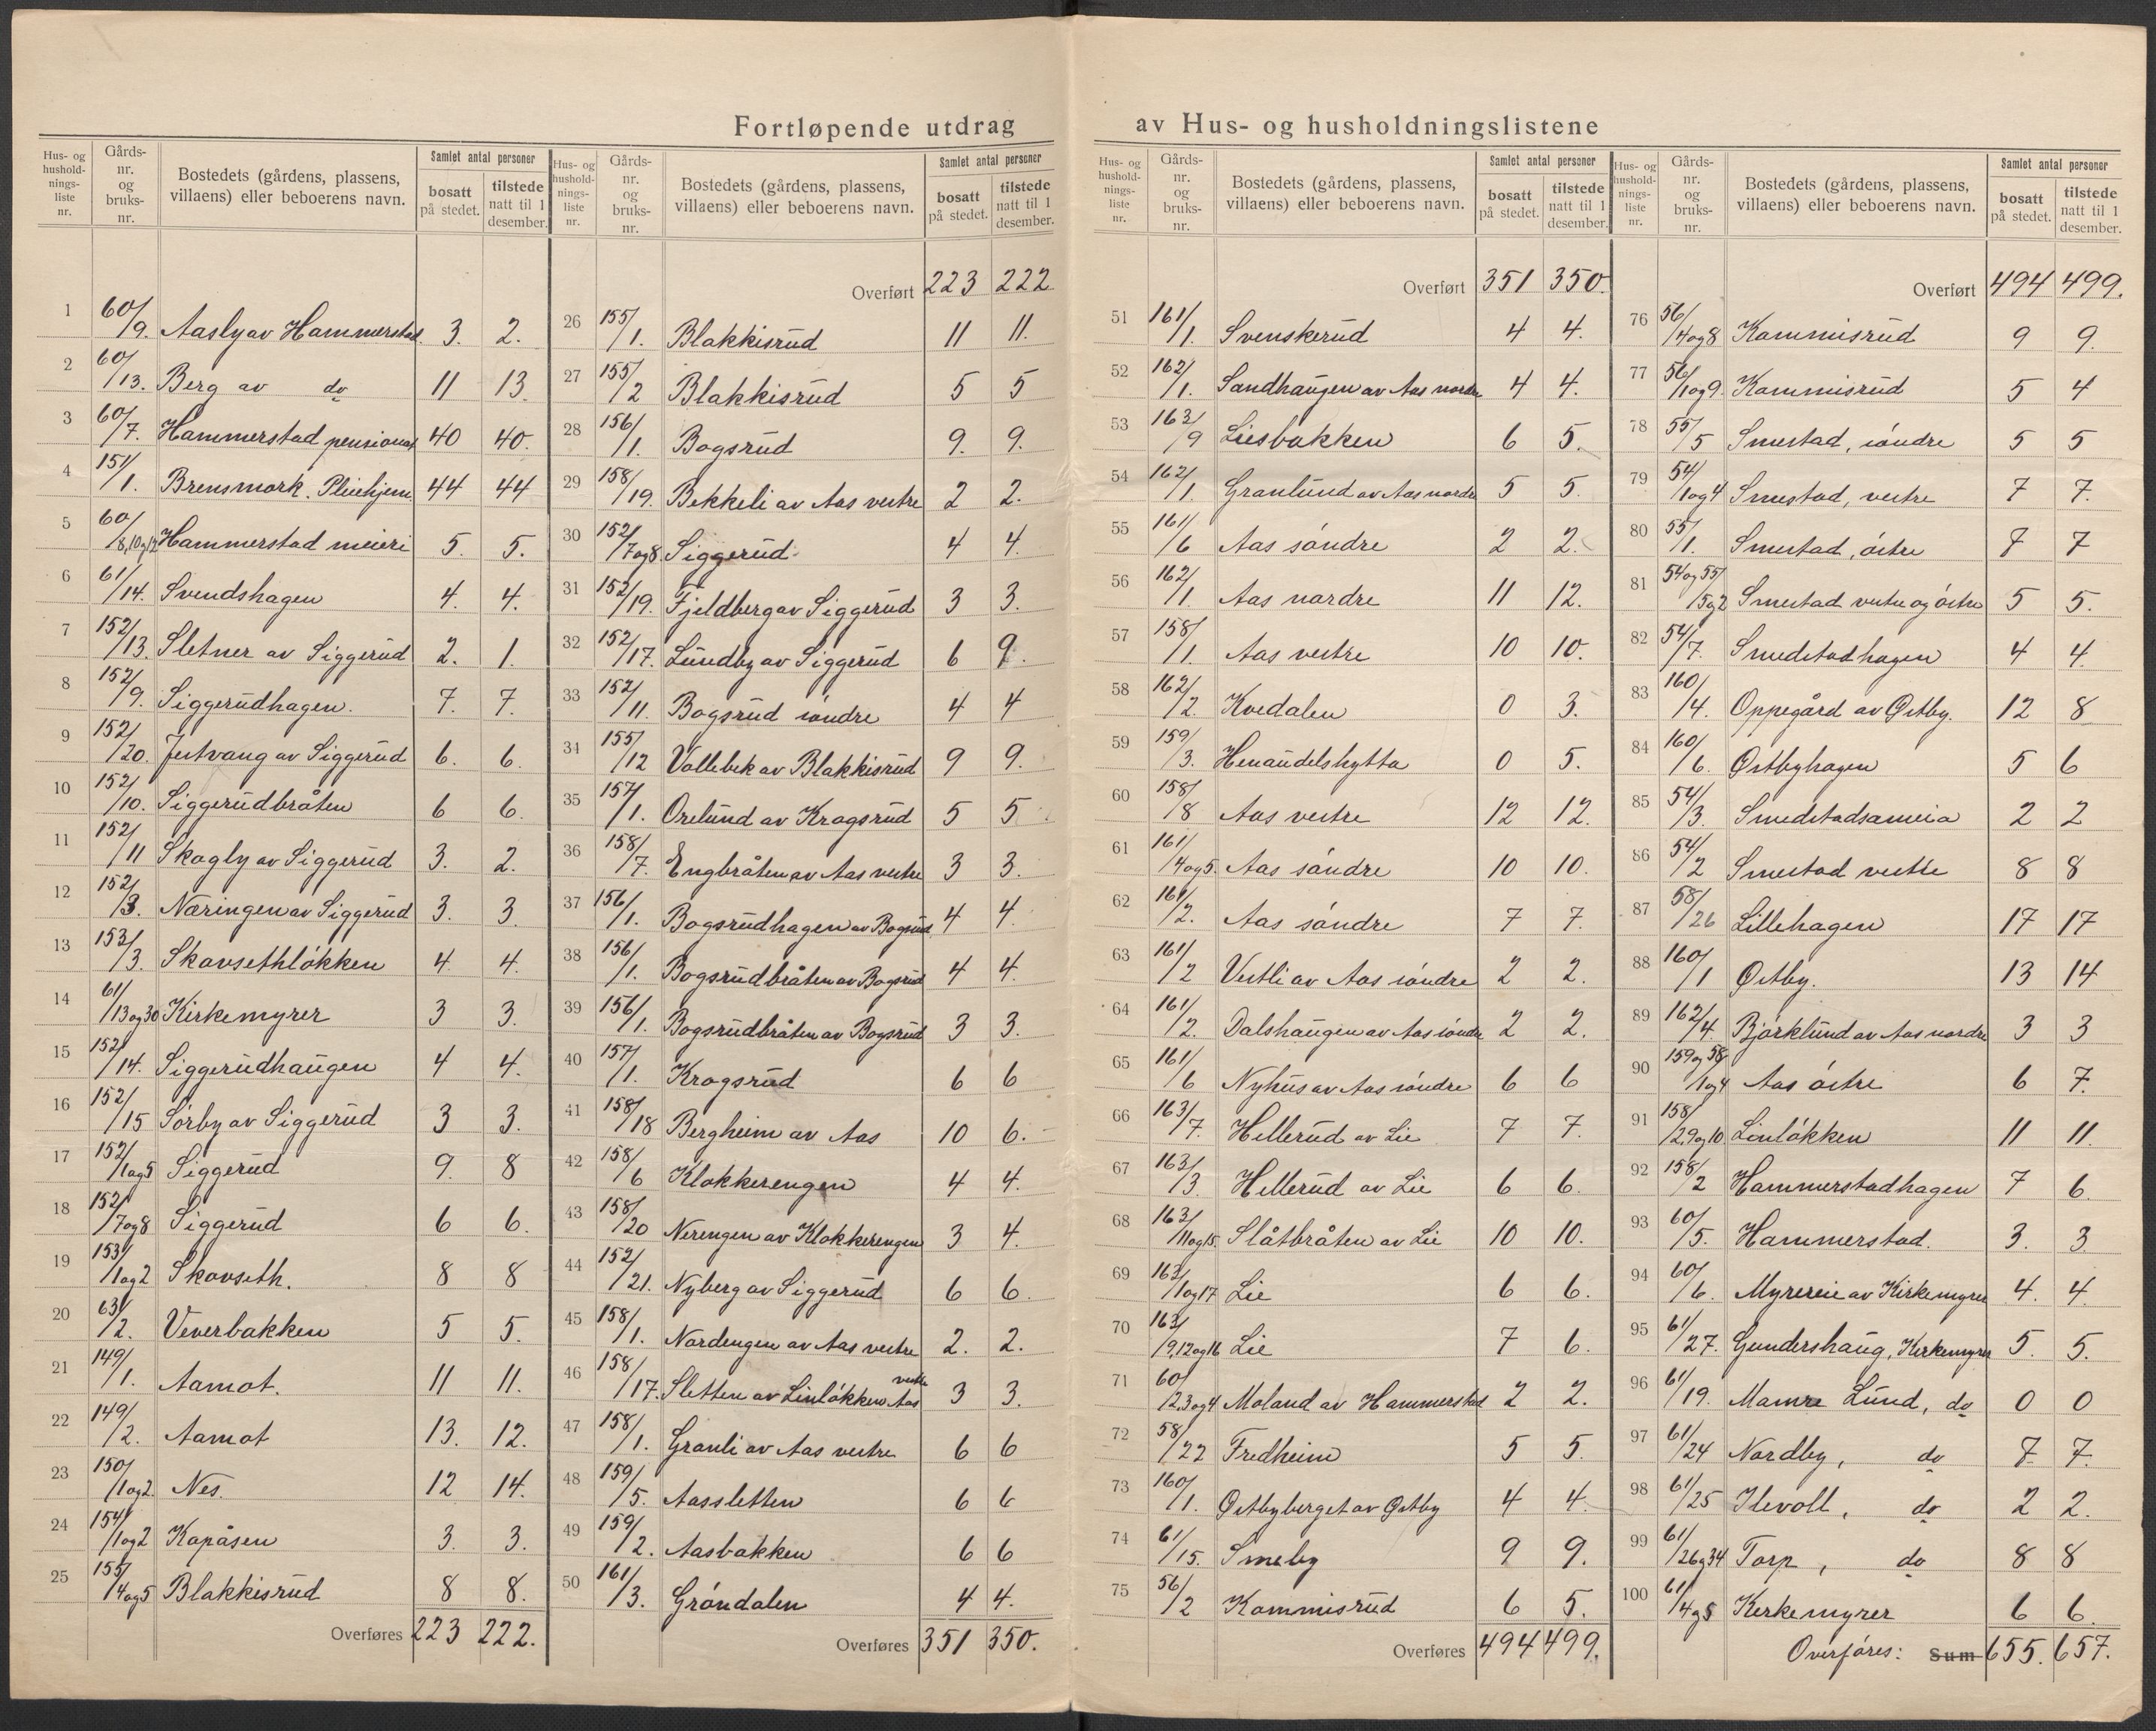 Fortløpende utdrag av Hus- og husholdningslistene
Hus- og hushold- nings- liste nr.
Gårds- nr. og bruks- nr.
Bostedets (gårdens, plassens, villaens) eller beboerens navn.
Samlet antal personer
bosatt på stedet.
tilstede natt til 1 desember.
1 60/9. Aasly av Hammerstad. 3. 2.
2 60/13. Berg av do 11 13.
3 60/7. Hammerstad pensionat 40 40.
4 151/1. Brensmork. Pleiehjem 44 44
5 60/8,10og12 Hammerstad meieri 5. 5.
6 61/14. Svendshagen 4. 4.
7 152/13. Sletner av Siggerud 2. 1.
8 152/9. Siggerudhagen. 7. 7.
9 152/20. Jutvang av Siggerud 6. 6.
10 152/10. Siggerudbråten 6 6.
11 152/11 Skogly av Siggerud 3. 2.
12 152/3. Næringen av Siggerud 3. 3.
13 153/3. Skovsethløkken 4. 4.
14 61/13og30 Kirkemyrer 3 3.
15 152/14. Siggerudhaugen 4 4.
16 152/15 Sørby av Siggerud 3 3.
17 152/1og5 Siggerud 9. 8
18 152/7og8 Siggerud 6 6.
19 153/1og2 Skovseth. 8 8
20 63/2. Veverbakken 5 5.
21 149/1. Aamot. 11 11.
22 149/2. Aamot 13. 12.
23 150/1og2. Nes. 12 14.
24 154/1og2 Kapåsen 3. 3.
25 155/4og5 Blakkisrud 8 8.
Overføres 223 222.
Hus- og hushold- nings- liste nr.
Gårds- nr. og bruks- nr.
Bostedets (gårdens, plassens, villaens) eller beboerens navn.
Samlet antal personer
bosatt på stedet.
tilstede natt til 1 desember.
Overført 223 222.
26 155/1. Blakkisrud 11 11.
27 155/2 Blakkisrud 5 5
28 156/1. Bogsrud 9. 9.
29 158/19. Bekkeli av Aas vestre 2 2.
30 152/7og8. Siggerud 4 4.
31 152/19. Fjeldberg av Siggerud 3 3.
32 152/17. Lundby av Siggerud 6 9.
33 152/11. Bogsrud søndre 4 4
34 155/12 Vollebek av Blakkisrud 9 9.
35 157/1. Orelund av Krogsrud 5 5
36 158/7. Engbråten av Aas vestre 3 3.
37 156/1. Bogsrudhagen av Bogsrud 4 4.
38 156/1. Bogsrudbråten av Bogsrud 4 4.
39 156/1. Bogsrudbråten av Bogsrud 3 3.
40 157/1. Krogsrud 6 6
41 158/18 Bergheim av Aas 10 6.
42 158/6 Klokkerengen 4 4.
43 158/20 Nerengen av Klokkerengen 3 4.
44 152/21. Nyberg av Siggerud 6 6.
45 158/1. Nordengen av Aas vestre 2. 2.
46 158/17. Sletten av Linløkken Aas vestre 3 3.
47 158/1. Granli av Aas vestre 6 6
48 159/5. Aassletten 6 6
49 159/2. Aasbakken 6 6
50 161/3. Grøndalen 4 4.
Overføres 351 350.
Hus- og hushold- nings- liste nr.
Gårds- nr. og bruks- nr.
Bostedets (gårdens, plassens, villaens) eller beboerens navn.
Samlet antal personer
bosatt på stedet.
tilstede natt til 1 desember.
Overført 351 350.
51 161/1. Svenskerud 4 4.
52 162/1. Sandhaugen av Aas nordre 4 4.
53 163/9 Liesbakken 6 5.
54 162/1. Granlund av Aas nordre 5 5.
55 161/6 Aas søndre 2 2.
56 162/1. Aas nordre 11 12.
57 158/1. Aas vestre 10 10.
58 162/2. Kvedalen 0 3.
59 159/3. Henaudelshytta 0 5.
60 158/8 Aas vestre 12 12.
61 161/4og5. Aas søndre 10 10.
62 161/2. Aas søndre 7 7.
63 161/2 Vestli av Aas søndre 2 2.
64 161/2. Dalshaugen av Aas søndre 2 2.
65 161/6 Nyhus av Aas søndre 6 6
66 163/7. Hellerud av Lie 7 7.
67 163/3. Hellerud av Lie 6 6.
68 163/11og15. Slåtbråten av Lie 10 10.
69 163/1og17 Lie 6 6.
70 163/9,12og16 Lie 7 6.
71 60/2,3og4 Moland av Hammerstad 2 2.
72 58/22 Fredheim 5 5.
73 160/1. Østbyberget av Østby 4 4.
74 61/15. Smeby 9 9.
75 56/2 Kommisrud 6 5.
Overføres 494 499.
Hus- og hushold- nings- liste nr.
Gårds- nr. og bruks- nr.
Bostedets (gårdens, plassens, villaens) eller beboerens navn.
Samlet antal personer
bosatt på stedet.
tilstede natt til 1 desember.
Overført 494 499.
76 56/4og8 Kommisrud 9 9.
77 56/1og9. Kommisrud 5 4
78 55/5 Smestad, søndre 5 5
79 54/1og4 Smestad, vestre 7 7.
80 55/1. Smestad, østre 7 7
81 54og55/5g2 Smestad vestre og østre 5 5.
82 54/7. Smedstadhagen 4 4.
83 160/4. Oppegård av Østby. 12 8
84 160/6. Østbyhagen 5 6
85 54/3. Smedstadsameia 2 2
86 54/2 Smestad vestre 8 8
87 58/26 Lillehagen 17 17
88 160/1 Østby. 13 14
89 162/4 Bjørklund av Aas nordre 3 3
90 159og58/1og4 Aas østre 6 7.
91 158/2,9og10. Linløkken 11 11.
92 158/2 Hammerstadhagen 7 6.
93 60/5. Hammerstad. 3. 3
94 60/6. Myrereie av Kirkemyrer 4. 4.
95 61/27. Gundershaug, Kirkemyrer 5. 5.
96 61/19. Mamre Lund, do 0 0
97 61/24 Nordby, do 7. 7.
98 61/25 Ilevoll, do 2 2.
99 61/26g34 Torp, do 8 8
100 61/4g5 Kirkemyrer 6 6.
Overføres: Sum 655. 657.